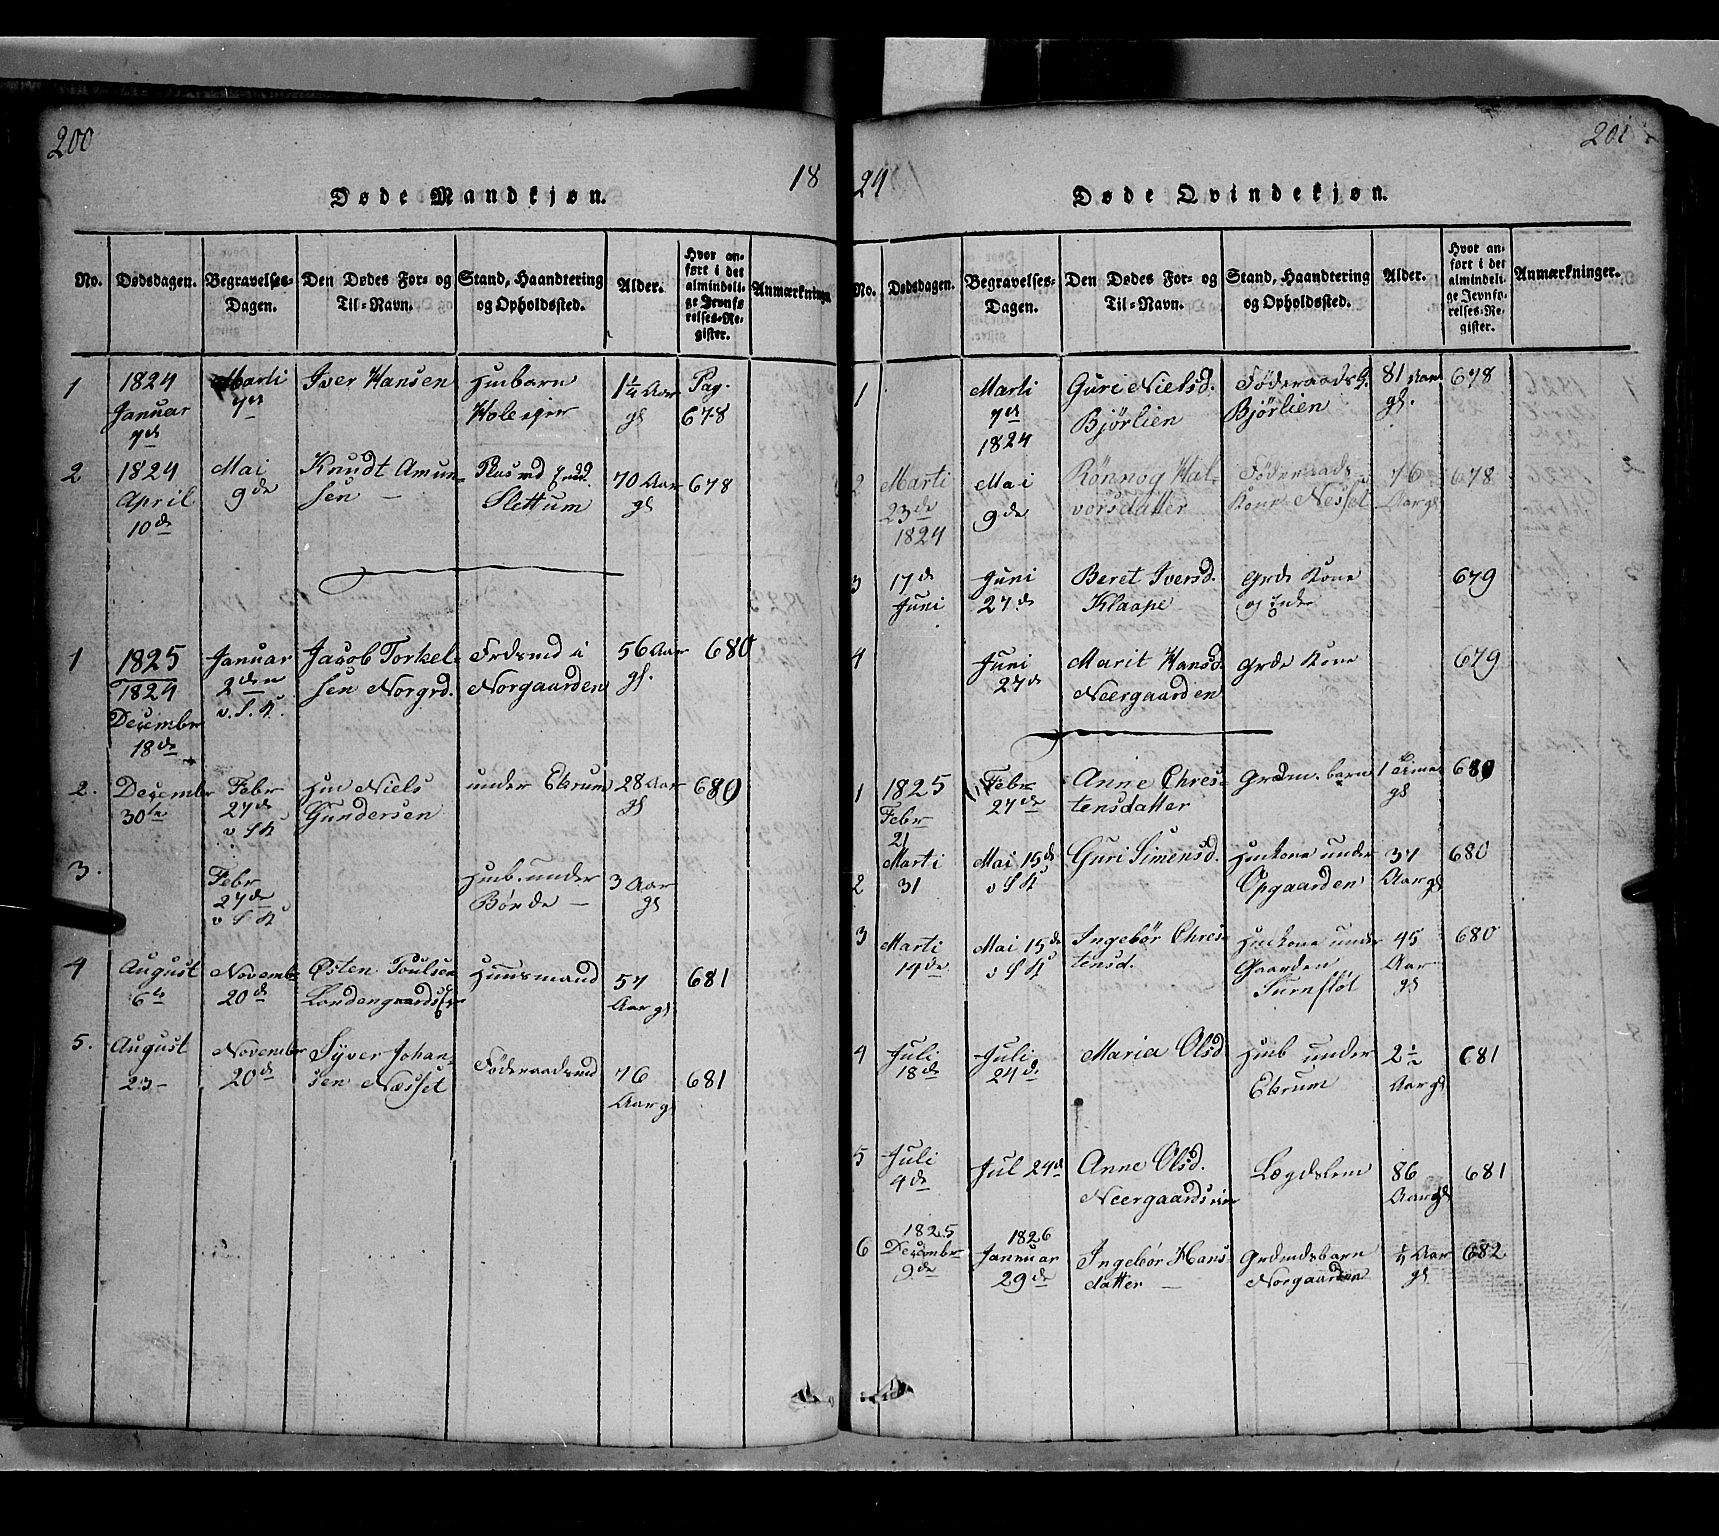 200
18
Døde Mandkjøn.
No.
Dødsdagen.
Begravelses-
Dagen.
Den Dødes For- og
Til-Navn.
Stand, Haandtering
og Opholdssted.
Alder.
Hvor an-
ført i det
almindeli-
ge Jevnfø
relses-Re-
gister.
Anmærkninger
1
1824
Januar
7de
Marti
7de
Iver Hansen
Husbarn
1 1/4 Aar
gl
Pag.
678
2
1824
April
10de
Mai
9de
Knudt Amun-
sen
Slettum
70 Aar
gl
678
1
1825
1824
December
18de
Januar
2den
v. S. K.
Jacob Torkel-
sen Norgrd.
i
Norgaarden
56 Aar
gl.
680
2.
December
30te
Febr
27de
v S K
Niels
Gundersen
under Ekrum
28 Aar
gl
680
3.
Febr
27de
v S K
under
Børde
3 Aar
gl
4
August
6te
Novembr
20de
Østen Poulsen
Huusmand
57
Aar gl
681
5.
August
23
Novembr
20de
Syver Johan-
sen Næsset
Føderaadsmd
76
Aar gl
681
201
24
Døde Qvindekjøn.
No.
Dødsdagen.
Begravelses-
Dagen.
Den Dødes For- og
Til-Navn.
Stand, Haandtering
og Opholdssted.
Alder.
Hvor an-
ført i det
almindeli-
ge Jevnfø-
relses-Re-
gister.
Anmærkninger.
1
Marti
7de
1824
Guri Nielsd.
Bjørlien
Føderaadsk.
Bjørlien
81 Aar
gl.
678
2
Marti
23de
1824
Mai
9de
Rønnog Hal-
vorsdatter
Føderaads
Kone Nesset
76
Aar gl
678
3
17de
Juni
Juni
27de
Beret Iversd.
Klaape
Grds Kone
679
4
Juni
27de
Marit Hansd
Neergaarden
Grds Kone
679
1
1825
Febr
21
Febr
27de
Anne Chres-
tensdatter
Grdm. barn
gl
680
2
Marti
31
Mai 15de
v S K
Guri Simensd.
Huskone under
Opgaarden
37
Aar gl
680
3
Marti
14de
Mai 15de
v S K
Ingebør Chres-
tensd.
Huskone under
Gaarden
45
Aar
gl
680
4
Juli
18de
Juli
24de
Maria Olsd
Husb under
Ekrum
2 1/2
Aar gl
681
5
Juli
4de
Jul 24de
Anne Olsd.
Lægdslem
86
Aar gl
681
6
1825
Decembr
9de
1826
Januar
29de
Ingebør Hans-
datter
Grdmdsbarn
Norgaarden
1/2 Aar
gl
682